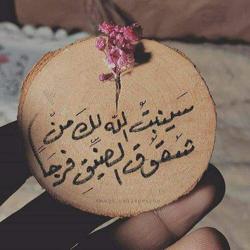 سينبتُ الله لك من
شقوق الضيق فرجا